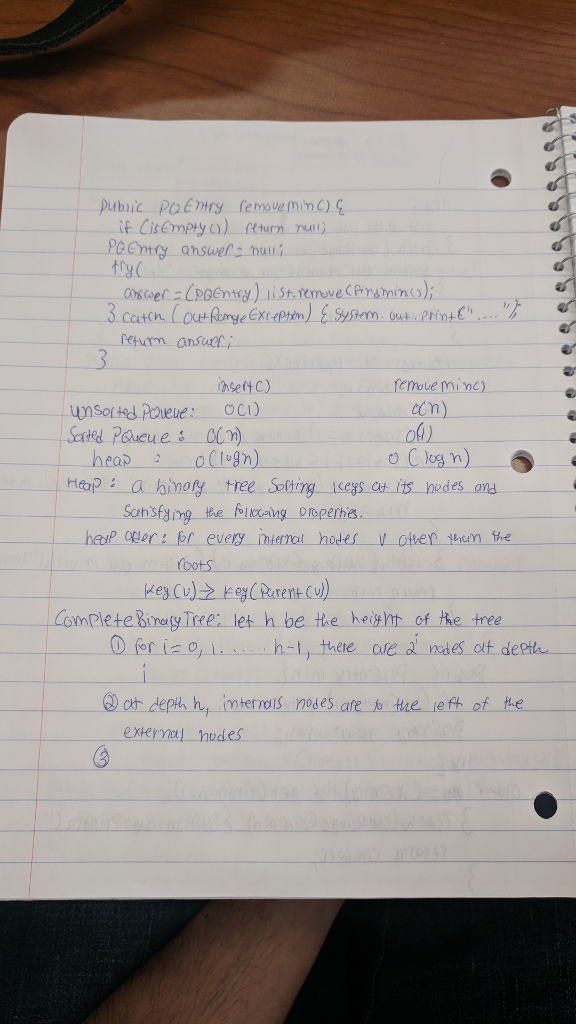 public PQEntry removeMin() {
if (isEmpty()) return null;
PQEntry answer = null;
try{
answer = (PQEntry) list.remove(findmin());
} catch (outRangeException) { System.out.print("....");
return answer;
}
insert() removemin()
unsorted PQueue: O(1) O(n)
Sorted PQueue : O(n) O(1)
heap : O(logn) O(logn)
Heap : a binary tree sorting keys at its nodes and
satisfying the following properties.
heap order : for every internal nodes v other than the
roots
key(v) ≥ key(Parent(v))
Complete Binary Tree: let h be the height of the tree
① for i = 0, 1 ...... h-1, there are 2^i nodes at depth
i
② at depth h, internals nodes are to the left of the
external nodes
③